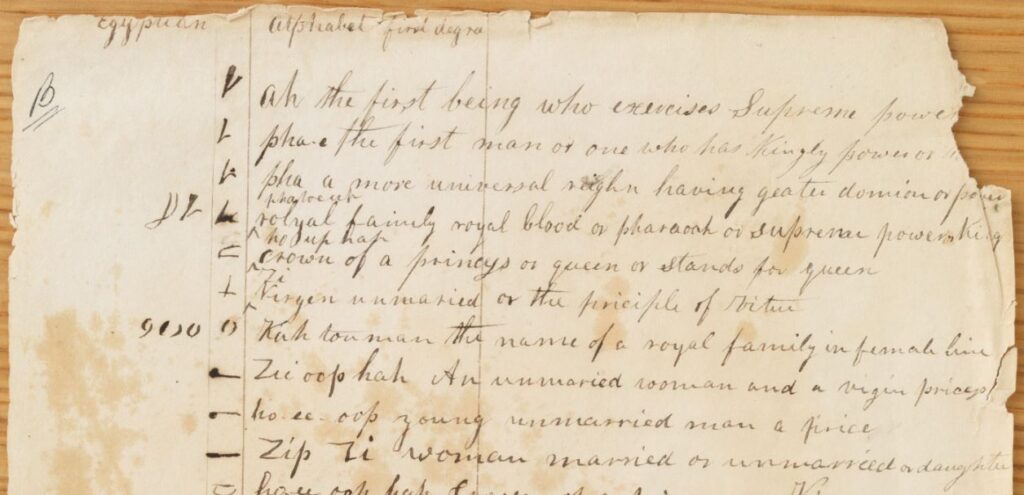 Egyptian alphabet first degre
B
Ah the first being who exercises Supreme power
phah-e the first man or one who has Kingly power or
pha a more universal reighn having geater domion or power
phaoeup
rolyal family royal blood or pharaoah or supreme power King
ho up hah
crown of a princys or queen or stands for queen
Zi
Virgen unmaried or the priciple of virtue
Kah tou man the name of a royal family in female line
Zi oop hah An unmaried woman and a vigin pricess
ho-ee-oop young unmarried man a price
Zip Zi woman married or unmarried or daughter